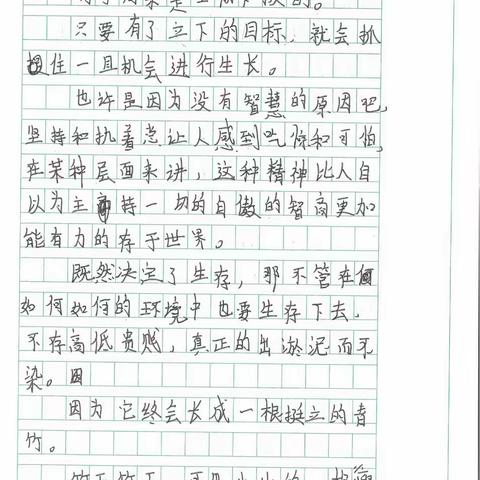 只要有了立下的目标，就会抓
住一且机会进行生长。
也许是因为没有智慧的原因吧，
坚持和执着总让人感到吃惊和可怕，
在某种层面来讲，这种精神比人自
以为主持一切的自傲的智商更加
能有力的存于世界。
既然决定了生存，那不管在
如何如何的环境中也要生存下去，
不存高低贵贱，真正的出淤泥而不
染。因
因为它终会长成一根挺立的青
竹。